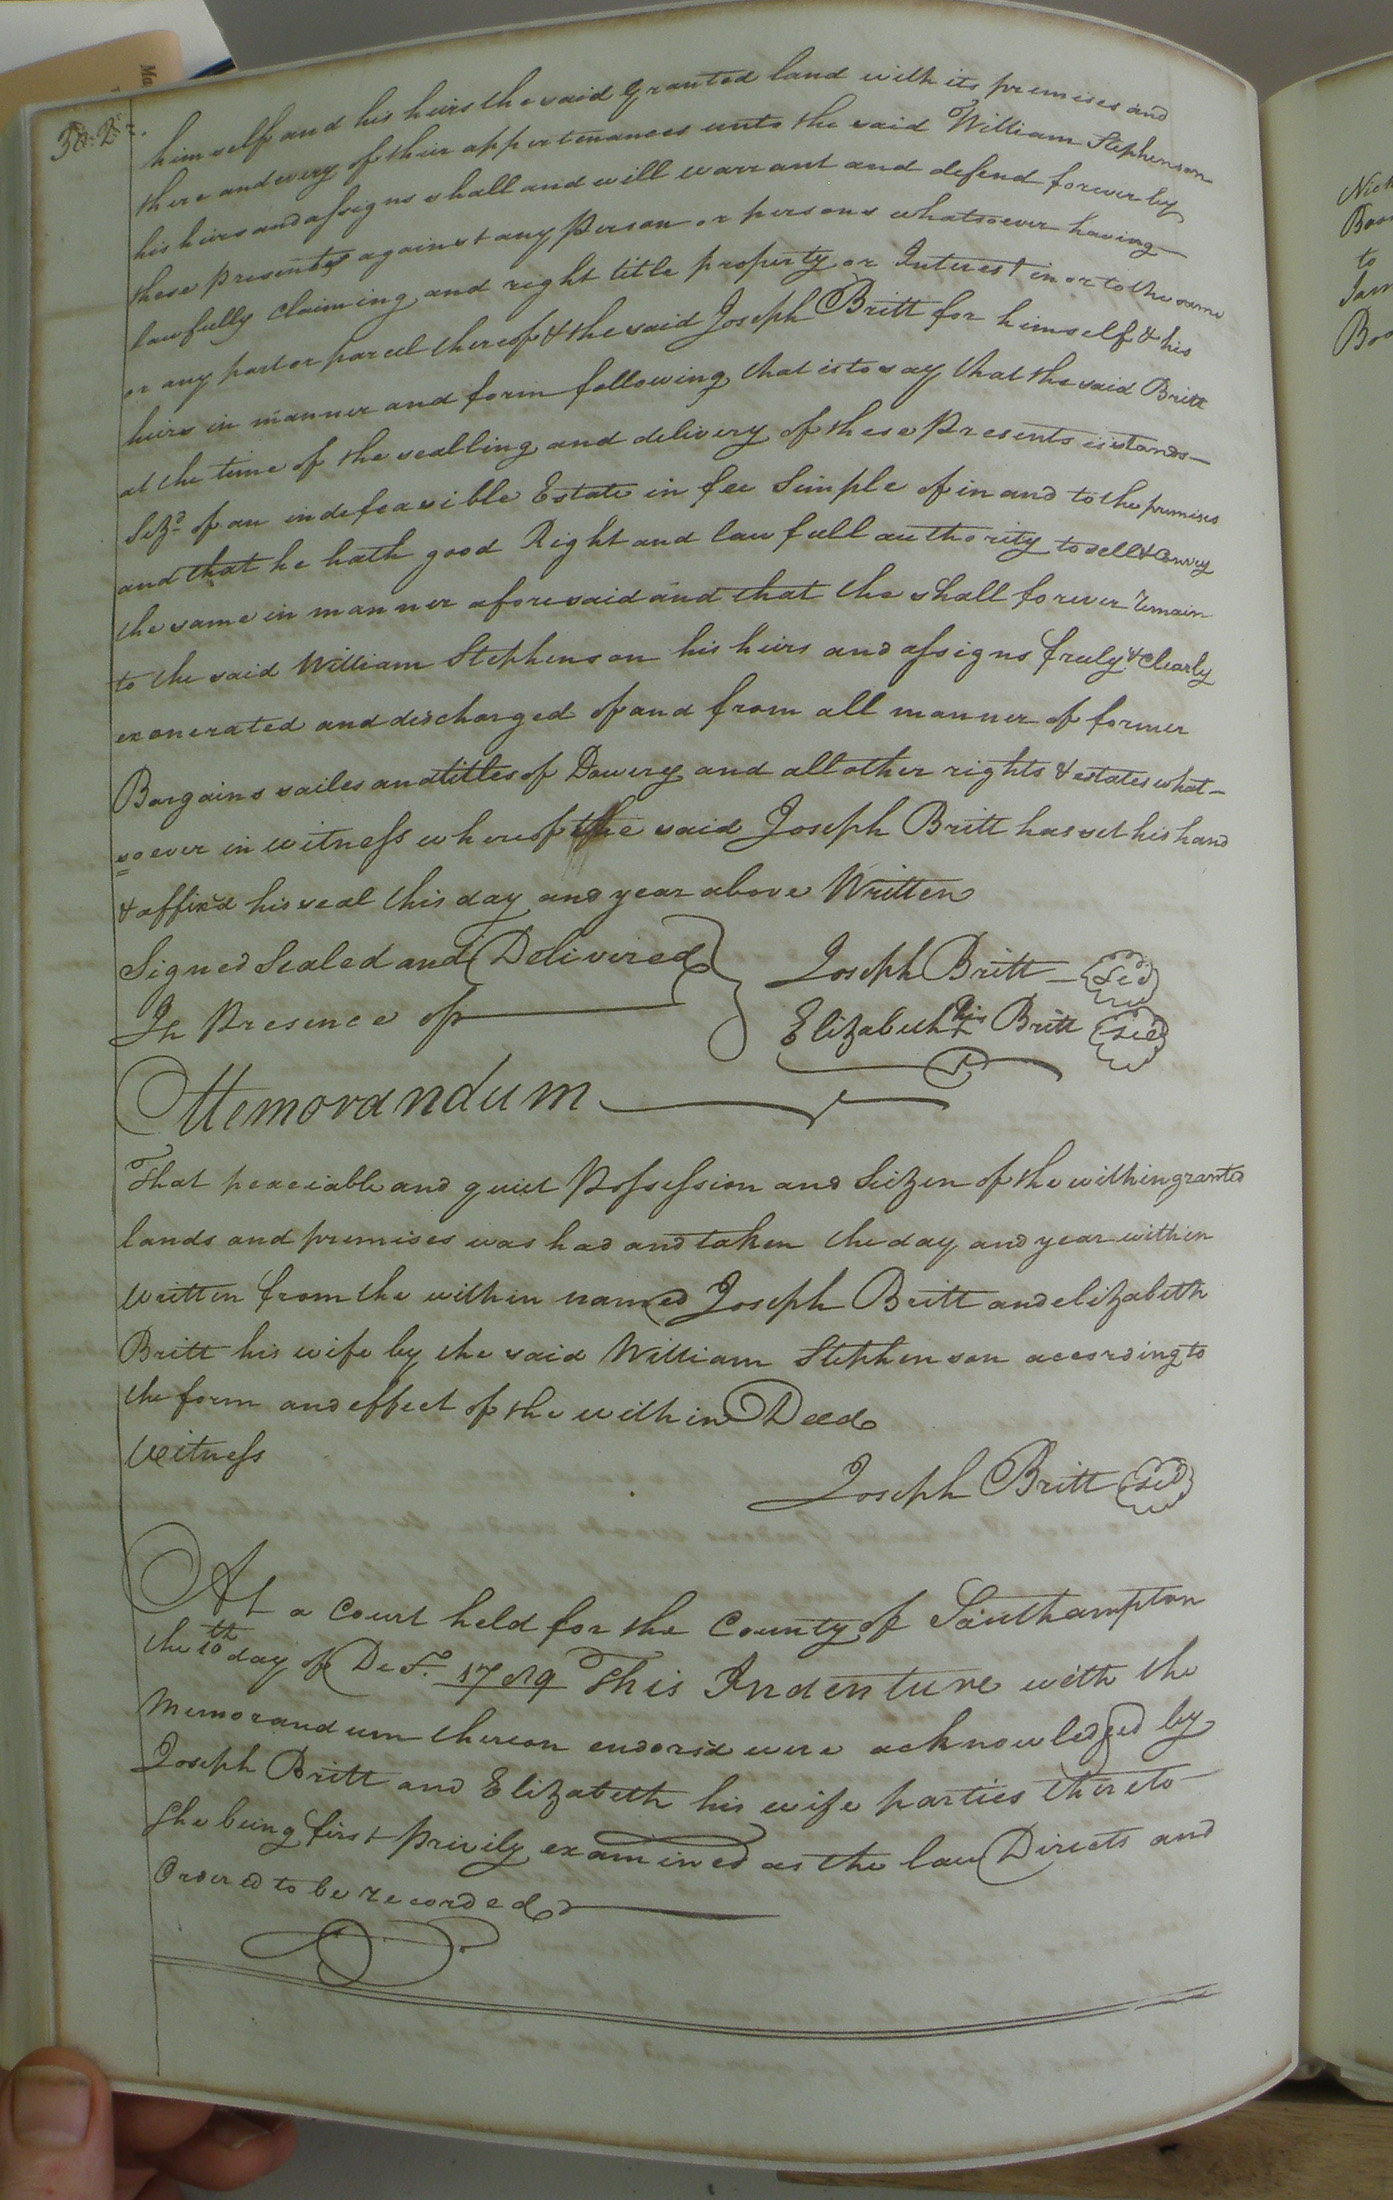 302
himself and his heirs the said Granted land with its premises and
there and every of their appertenances unto the said William Stephenson
his heirs and assigns shall and will warrant and defend forever by
these presents against any Person or persons whatsoever having
lawfully claiming and right title property or Interest in or to the same
or any part or parcel thereof & the said Joseph Britt for himself & his
heirs in manner and form following that is to say that the said Britt
at the time of the sealling and delivery of these Presents is stands
Sizd of an indefeasible Estate in fee Simple of in and to the premises
and that he hath good Right and lawfull authority to sell & Convey
the same in manner aforesaid and that the shall forever remain
to the said William Stephenson his heirs and assigns fruly & Clearly
exonerated and discharged of and from all manner of former
Bargains sailes and titles of Dowery and all other rights & estates what-
soever in witness whereof the said Joseph Britt has set his hand
& affixd his seal this day and year above Written
Signed Sealed and Delivered
In Presence of
Joseph Britt Sed
Elizabeth Britt Sed
Memorandum
That peaceiable and quiet Possession and Seizen of the within granted
lands and premises was had and taken the day and year within
Written from the within named Joseph Britt and elizabeth
Britt his wife by the said William Stephenson according to
the form and effect of the within Deed
Witness
Joseph Britt Sed
At a Court held for the County of Southampton
the 10th day of Decr. 1789 This Indenture with the
Memorandum thereon endorsd were acknowledged by
Joseph Britt and Elizabeth his wife parties thereto
She being first Privily examined as the law Directs and
Ordered to be recorded
Ma
Nich
Boo
to
Jam
Boo